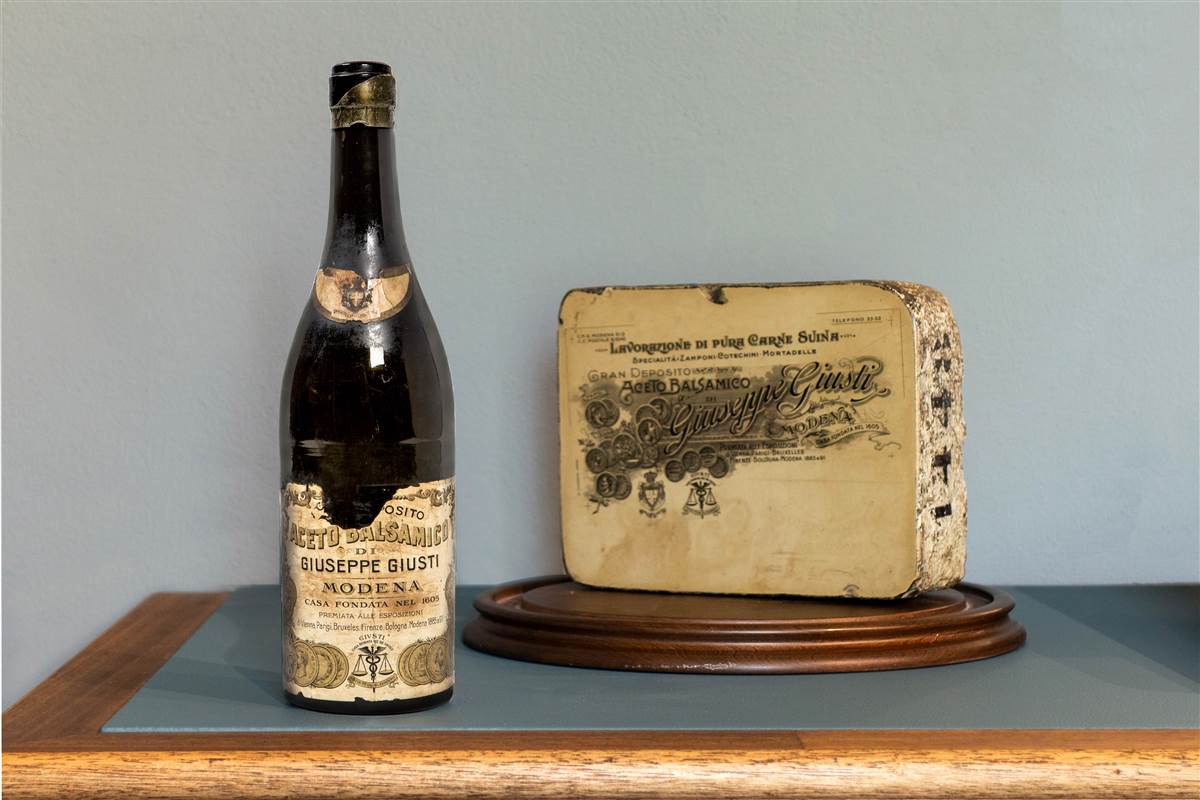 OSITO
ACETO BALSAMICO
DI
GIUSEPPE GIUSTI
MODENA
CASA FONDATA NEL 1605
PREMIATA ALLE ESPOSIZIONI
Vienna, Parigi, Bruxeles, Firenze, Bologna, Modena 1885 e 91
GIUSTI
TELEFONO 23-22
LAVORAZIONE DI PURA CARNE SUINA
SPECIALITÀ-ZAMPONI-COTECHINI-MORTADELLE
GRAN DEPOSITO
ACETO BALSAMICO
DI
Giuseppe Giusti
MODENA
CASA FONDATA NEL 1605
PREMIATA ALLE ESPOSIZIONI
PARIGI-BRUXELLES
FIRENZE-BOLOGNA-MODENA 1885 e 91